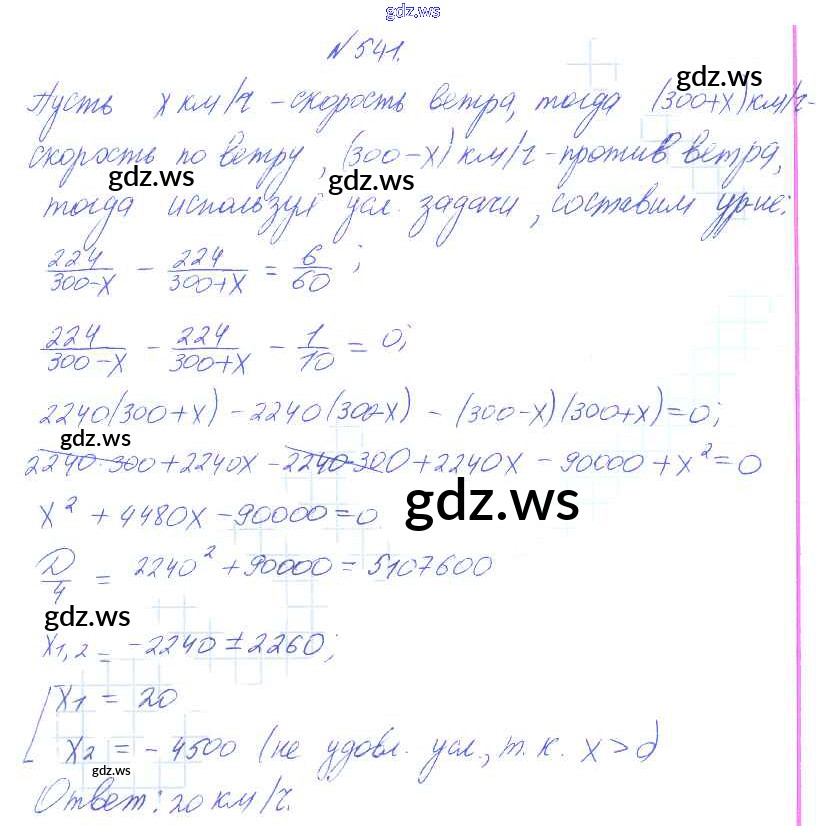 gdz.ws
N 541.
Пусть x км/ч - скорость ветра, тогда (300+x) км/ч -
gdz.ws
скорость по ветру, (300-x) км/ч - против ветра,
gdz.ws gdz.ws
тогда используя усл. задачи, составим ур-ие:
224/(300-x) - 224/(300+x) = 6/60 ;
224/(300-x) - 224/(300+x) - 1/10 = 0;
2240(300+x) - 2240(300-x) - (300-x)(300+x)=0;
gdz.ws
2240·300 + 2240x - 2240·300 + 2240x - 90000 + x² = 0
gdz.ws
x² + 4480x - 90000 = 0
D/4 = 2240² + 90000 = 5107600
gdz.ws
x1,2 = -2240 ± 2260;
x1 = 20
x2 = -4500 (не удовл. усл., т.к. x>0
gdz.ws
Ответ: 20 км/ч.